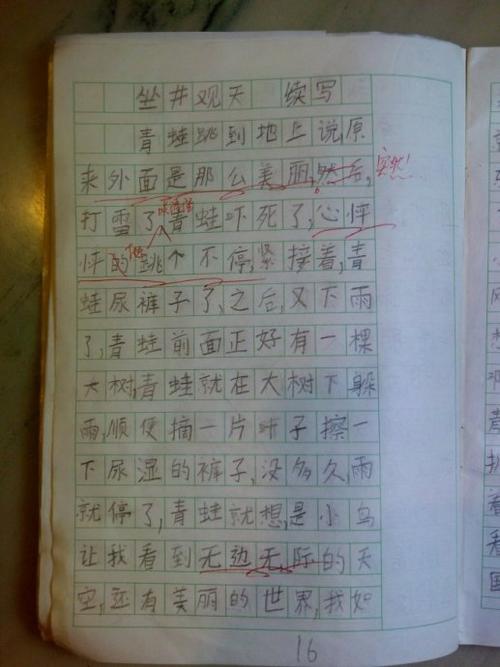 坐井观天 续写
青蛙跳到地上说,原
来外面是那么美丽,然后,
突然!
打雪了,青蛙吓死了,心怦
怦的跳个不停,紧接着,青
蛙尿裤子了,之后,又下雨
了,青蛙前面正好有一棵
大树,青蛙就在大树下躲
雨,顺便摘一片叶子擦一
下尿湿的裤子,没多久,雨
就停了,青蛙就想,是小鸟
让我看到无边无际的天
空,还有美丽的世界,我如
16